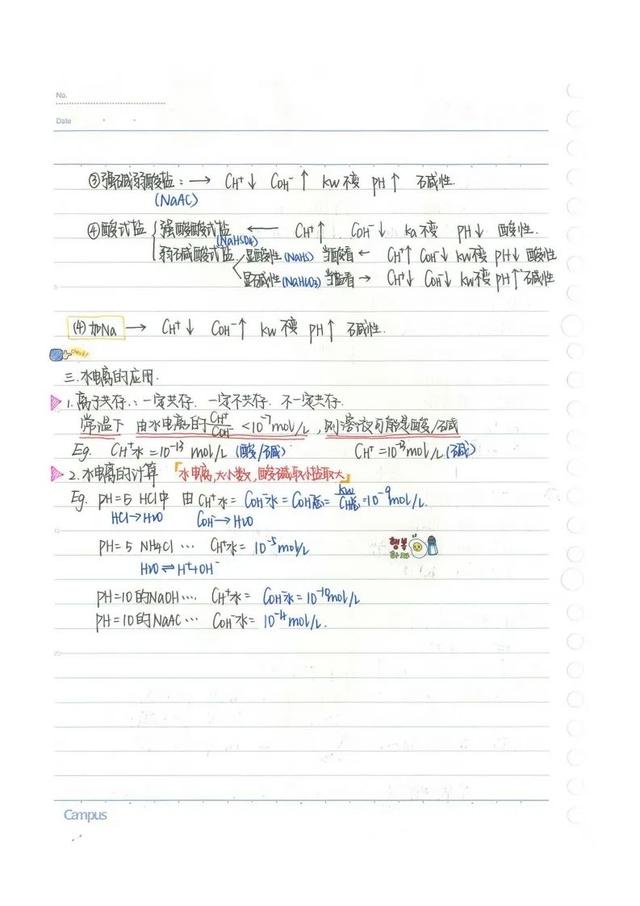 No.
Date
③强碱弱酸盐: → CH⁺↓ COH⁻↑ kw不变 PH↑ 碱性.
(NaAC)
④酸式盐 { 强酸酸式盐 ← CH⁺↑ COH⁻↓ ka不变 PH↓ 酸性.
(NaHSO4)
弱碱酸式盐 < 显酸性(NaHS) 当酸看 ← CH⁺↑ COH⁻↓ kw不变 PH↓ 酸性
显碱性(NaHCO3) 当盐看 ← CH⁺↓ COH⁻↓ kw不变 PH↑ 碱性
(4) 加Na → CH⁺↓ COH⁻↑ kw不变 PH↑ 碱性.
三.水电离的应用.
1. 离子共存.: 一定共存. 一定不共存. 不一定共存.
常温下 由水电离的 CH⁺/COH⁻ <10⁻⁷mol/L, 则溶液可能是酸/碱
Eg. CH⁺水=10⁻¹³ mol/L (酸/碱) CH⁺=10⁻¹³mol/L (碱)
2. 水电离的计算 「水电离,大小数,酸碱取小盐取大」
Eg. PH=5 HCl中 由CH⁺水= COH⁻水= COH⁻总= kw/CH⁺总 =10⁻⁹mol/L.
HCl→H₂O COH⁻→H₂O
PH=5 NH4Cl … CH⁺水= 10⁻⁵mol/L
H₂O⇌H⁺+OH⁻
행복
PH=10的NaOH… CH⁺水= COH⁻水=10⁻¹⁰mol/L
PH=10的NaAC… COH⁻水= 10⁻⁴mol/L.
Campus